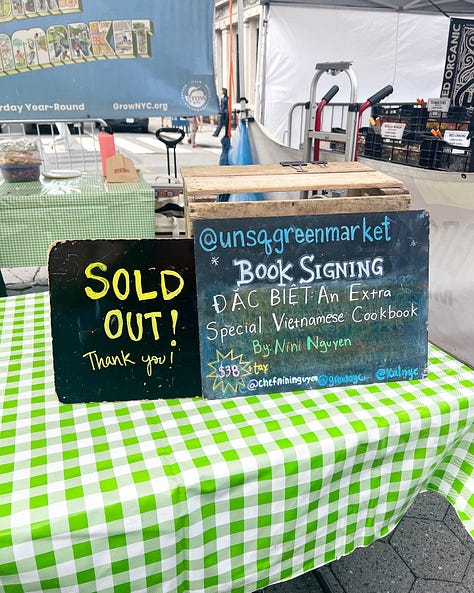 MARKET
rday Year-Round
GrowNYC.org
ED ORGANIC
@unsqgreenmarket
* BOOK SIGNING *
ĐẶC BIỆT: An Extra
Special Vietnamese Cookbook
By: Nini Nguyen
$38 + tax
@chefnininguyen @grownyc @Kalnyc
SOLD
OUT!
Thank you!